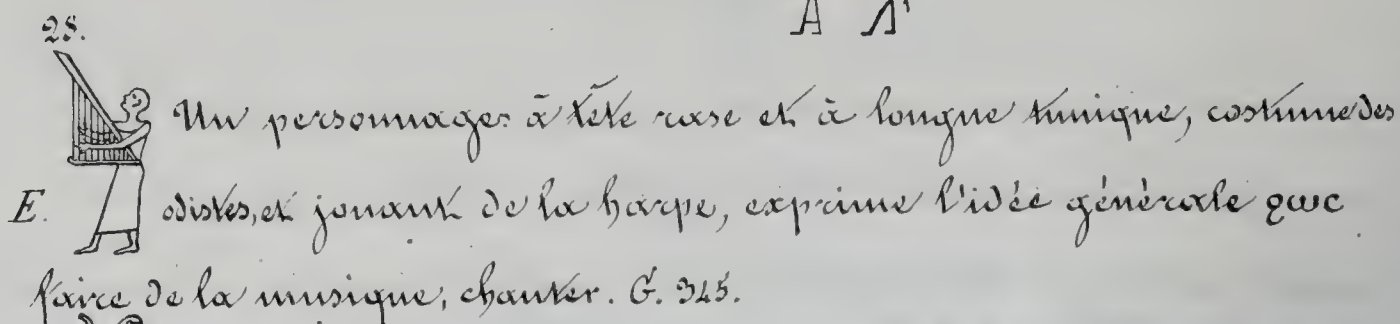 A A'
28.
Un personnage à tête rase et à longue tunique, costume des
E. odistes, et jouant de la harpe, exprime l'idée générale ϩⲱⲥ
faire de la musique, chanter. G. 345.